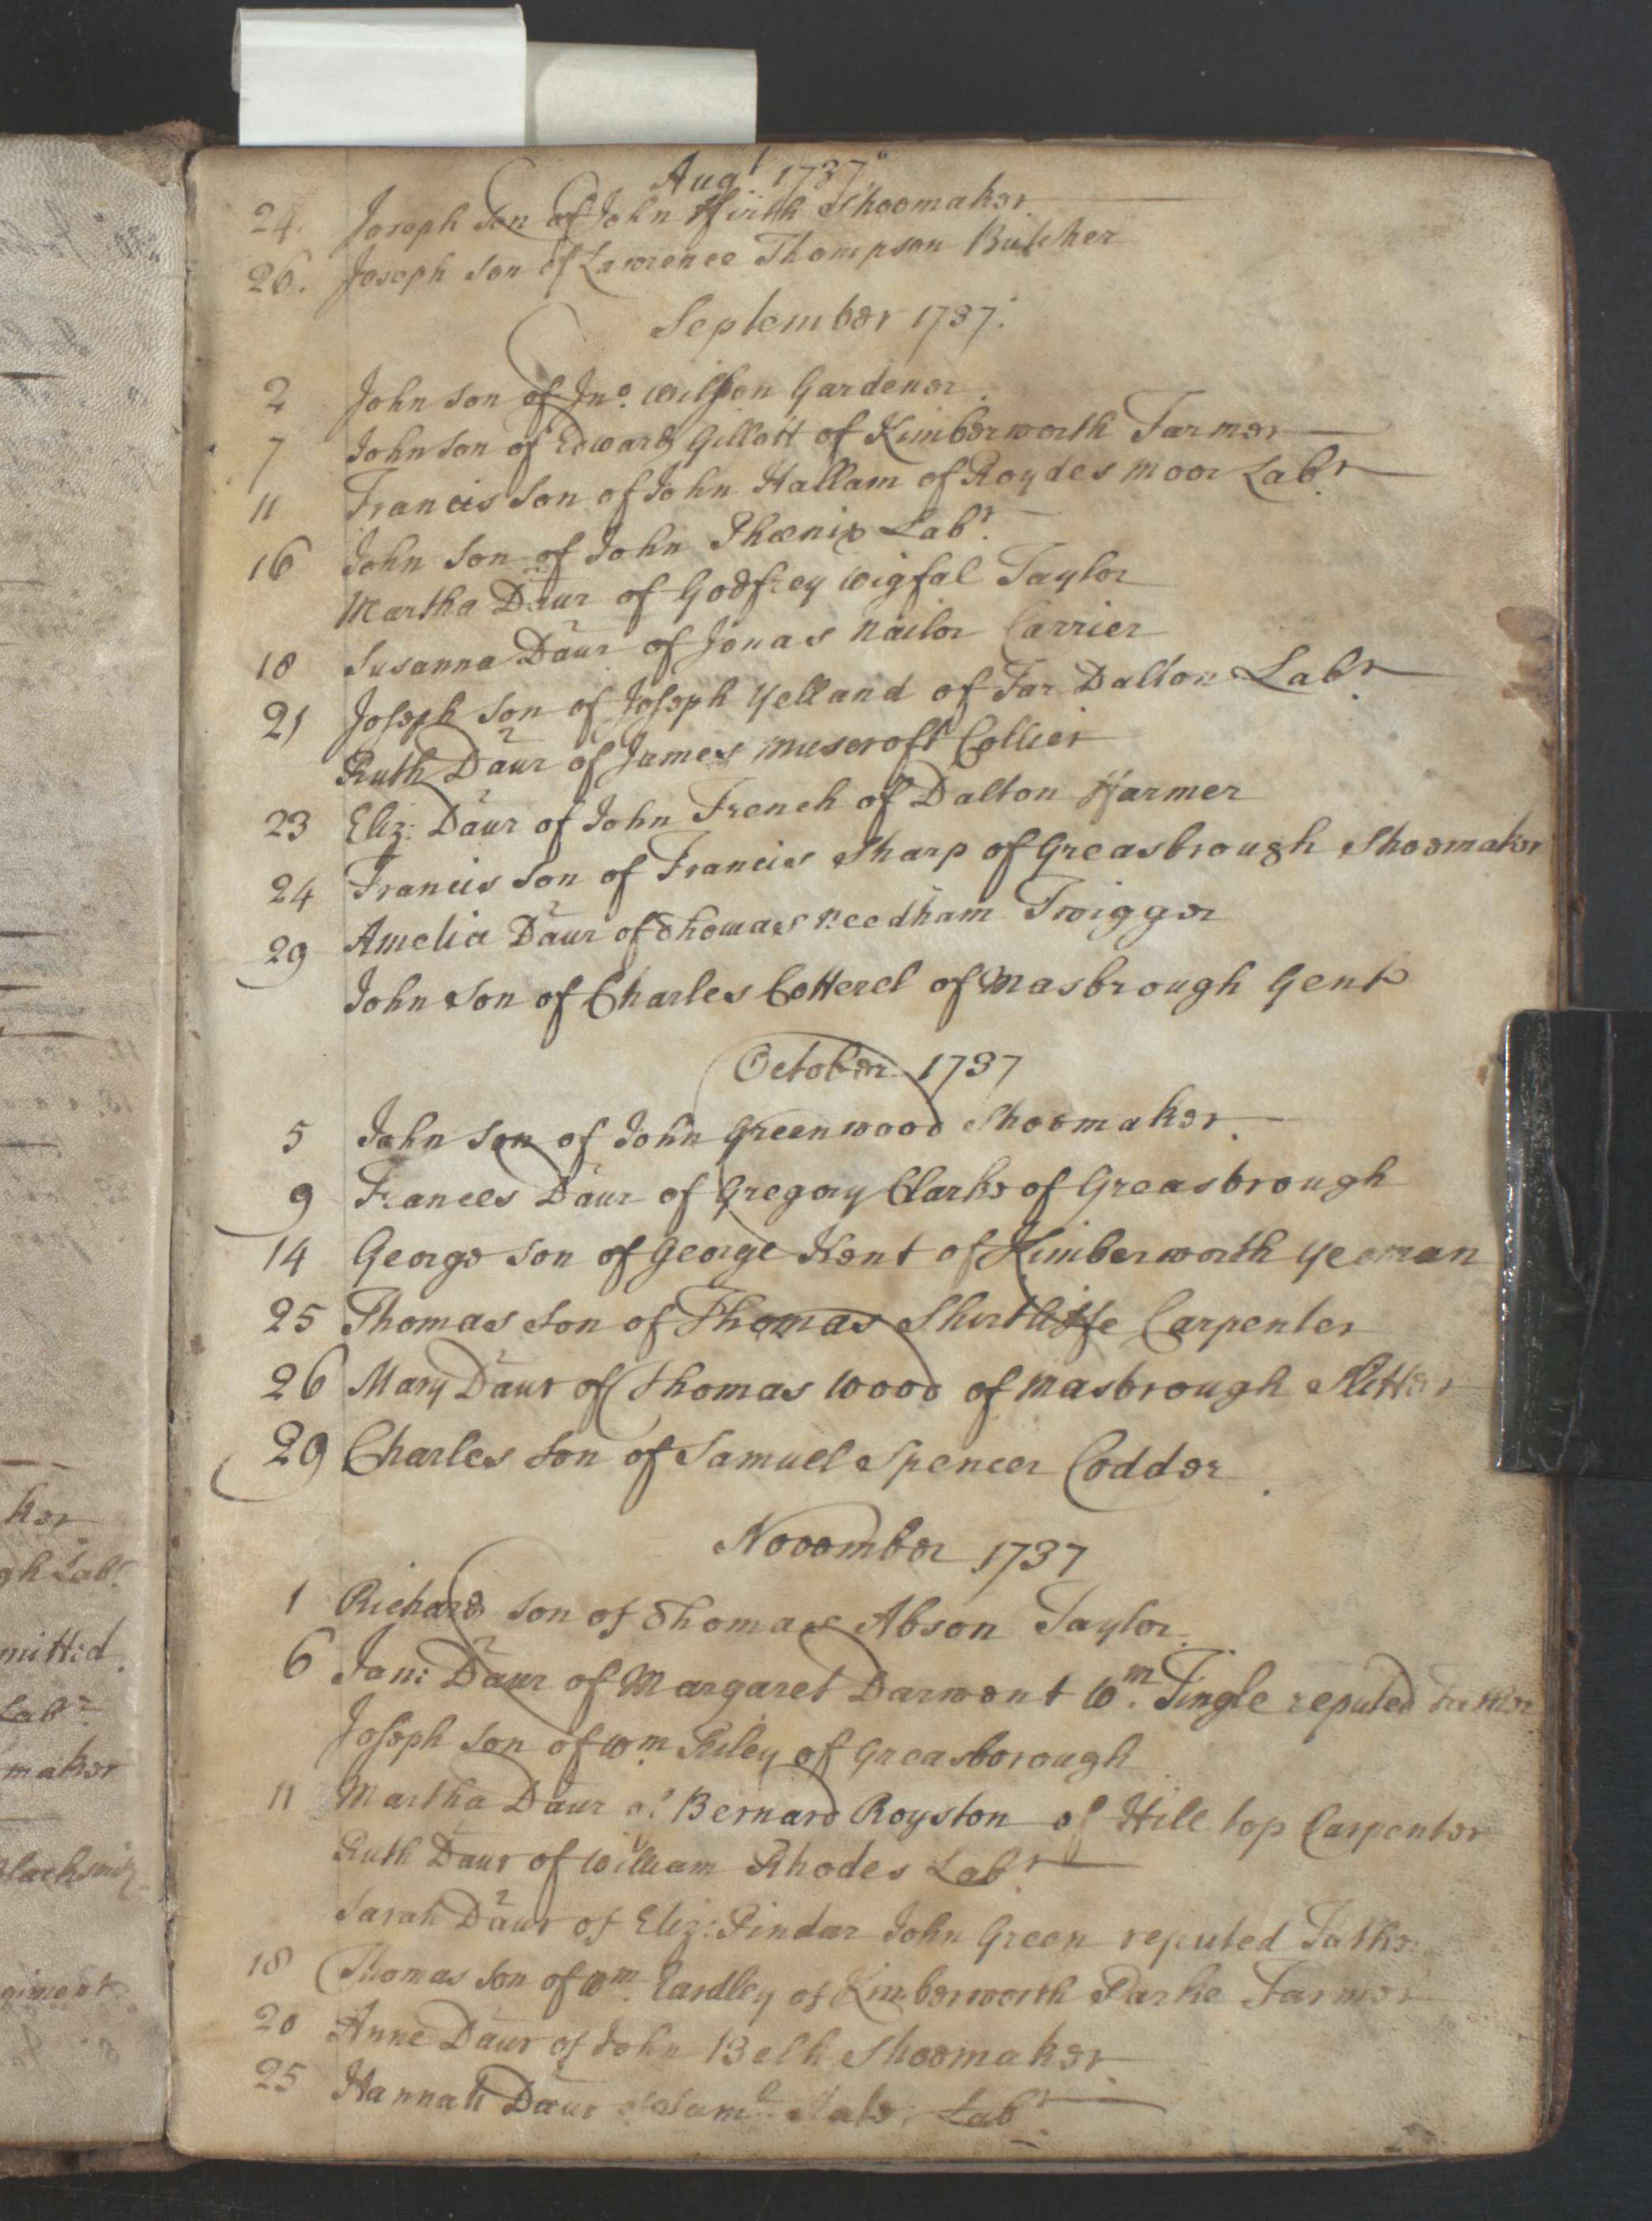 Augt 1737.
24. Joseph Son of John Firth Shoomaker
26. Joseph Son of Lawrence Thompson Butcher
September 1737.
2 John Son of Jno. Wilson Gardener
7 John Son of Edward Gillott of Kimberworth Farmer
11 Francis Son of John Hallam of Roydes moor Labr.
16 John Son of John Phœnix Labr.
Martha Daur of Godfrey Wigfal Taylor
18 Susanna Daur of Jonas Nailor Carrier
21 Joseph Son of Joseph Yelland of Far Dalton Labr.
Ruth Daur of James Muscroft Collier
23 Eliz: Daur of John French of Dalton Farmer
24 Francis Son of Francis Sharp of Greasbrough Shoomaker
29 Amelia Daur of Thomas Needham Twigger
John Son of Charles Cotterel of Masbrough Gent
October 1737
5 John Son of John Greenwood Shoomaker.
9 Frances Daur of Gregory Clarke of Greasbrough
14 George Son of George Kent of Kimberworth Yeoman
25 Thomas Son of Thomas Shirtliffe Carpenter
26 Mary Daur of Thomas Wood of Masbrough Slitter
29 Charles Son of Samuel Spencer Codder
November 1737
1 Richard Son of Thomas Abson Taylor.
6 Jane Daur of Margaret Darwent Wm. Tingle reputed Father
Joseph Son of Wm Riley of Greasborough
11 Martha Daur of Bernard Royston of Hill top Carpenter
Ruth Daur of William Rhodes Labr.
Sarah Daur of Eliz: Pindar John Green reputed Father
18 Thomas Son of Wm. Eardley of Kimberworth Parke Farmer
20 Anne Daur of John Belk Shoomaker.
25 Hannah Daur of Saml. Labr.